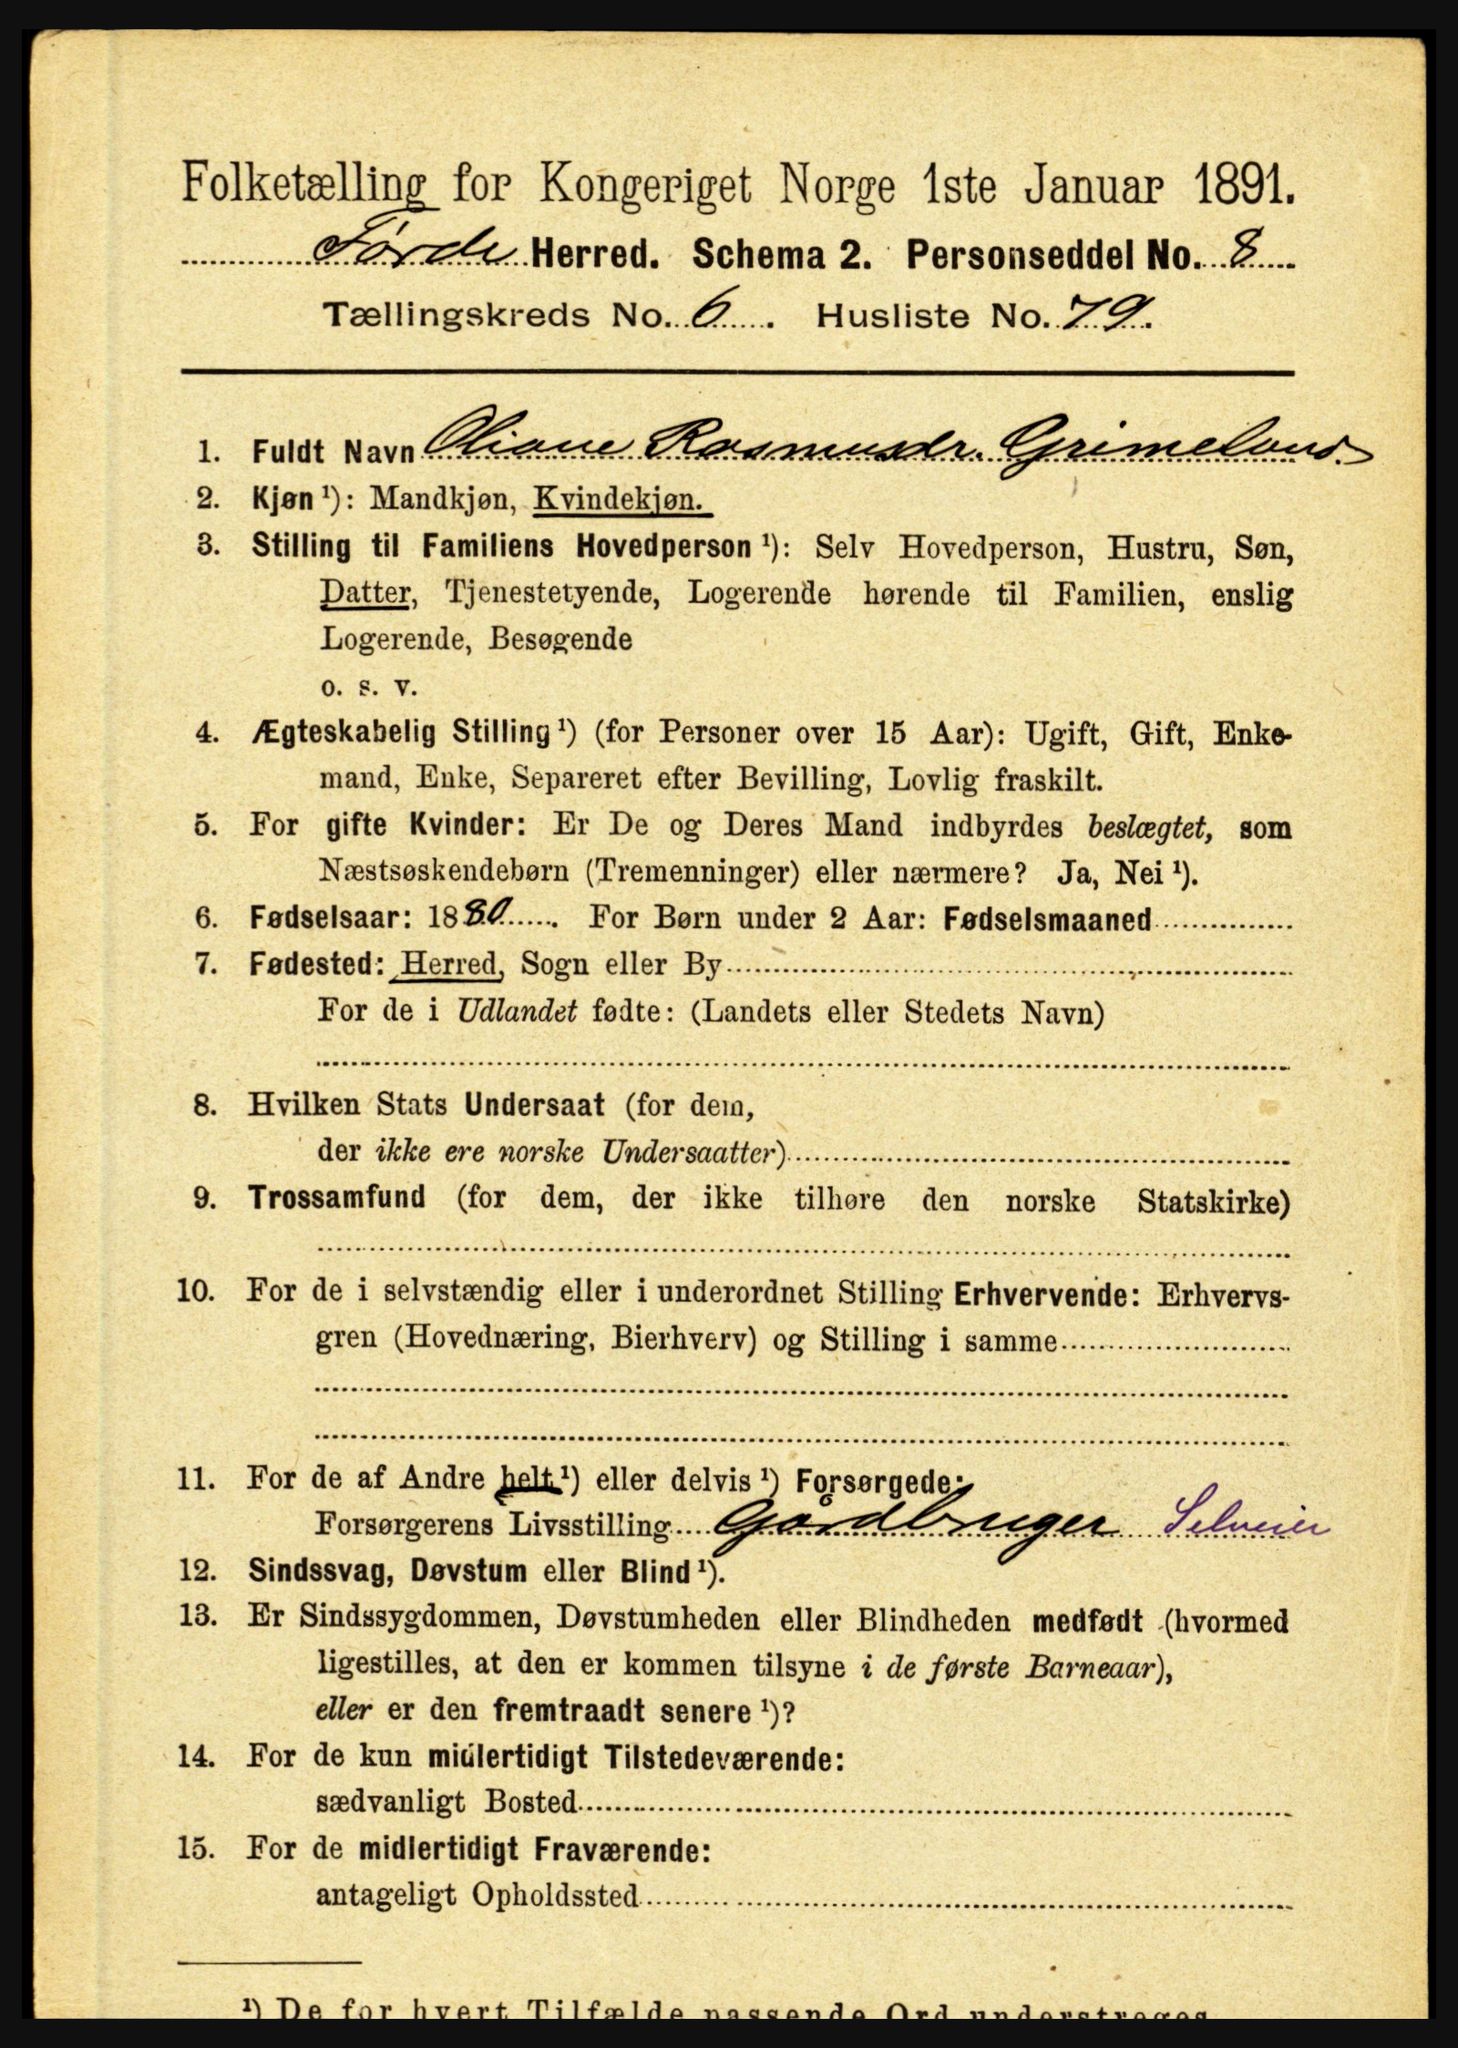 Folketælling for Kongeriget Norge 1ste Januar 1891.
Førde Herred. Schema 2. Personseddel No. 8
Tællingskreds No. 6. Husliste No. 79.
1. Fuldt Navn Oliane Rasmusdr. Grimeland.
2. Kjøn ¹): Mandkjøn, Kvindekjøn.
3. Stilling til Familiens Hovedperson ¹): Selv Hovedperson, Hustru, Søn,
Datter, Tjenestetyende, Logerende hørende til Familien, enslig
Logerende, Besøgende
o. s. v.
4. Ægteskabelig Stilling ¹) (for Personer over 15 Aar): Ugift, Gift, Enke-
mand, Enke, Separeret efter Bevilling, Lovlig fraskilt.
5. For gifte Kvinder: Er De og Deres Mand indbyrdes beslægtet, som
Næstsøskendebørn (Tremenninger) eller nærmere? Ja, Nei ¹).
6. Fødselsaar: 1880. For Børn under 2 Aar: Fødselsmaaned
7. Fødested: Herred, Sogn eller By
For de i Udlandet fødte: (Landets eller Stedets Navn)
8. Hvilken Stats Undersaat (for dem,
der ikke ere norske Undersaatter)
9. Trossamfund (for dem, der ikke tilhøre den norske Statskirke)
10. For de i selvstændig eller i underordnet Stilling Erhvervende: Erhvervs-
gren (Hovednæring, Bierhverv) og Stilling i samme
11. For de af Andre helt ¹) eller delvis ¹) Forsørgede:
Forsørgerens Livsstilling Gårdbruger Selveier
12. Sindssvag, Døvstum eller Blind ¹).
13. Er Sindssygdommen, Døvstumheden eller Blindheden medfødt (hvormed
ligestilles, at den er kommen tilsyne i de første Barneaar),
eller er den fremtraadt senere ¹)?
14. For de kun midlertidigt Tilstedeværende:
sædvanligt Bosted
15. For de midlertidigt Fraværende:
antageligt Opholdssted
¹) De for hvert Tilfælde passende Ord understreges